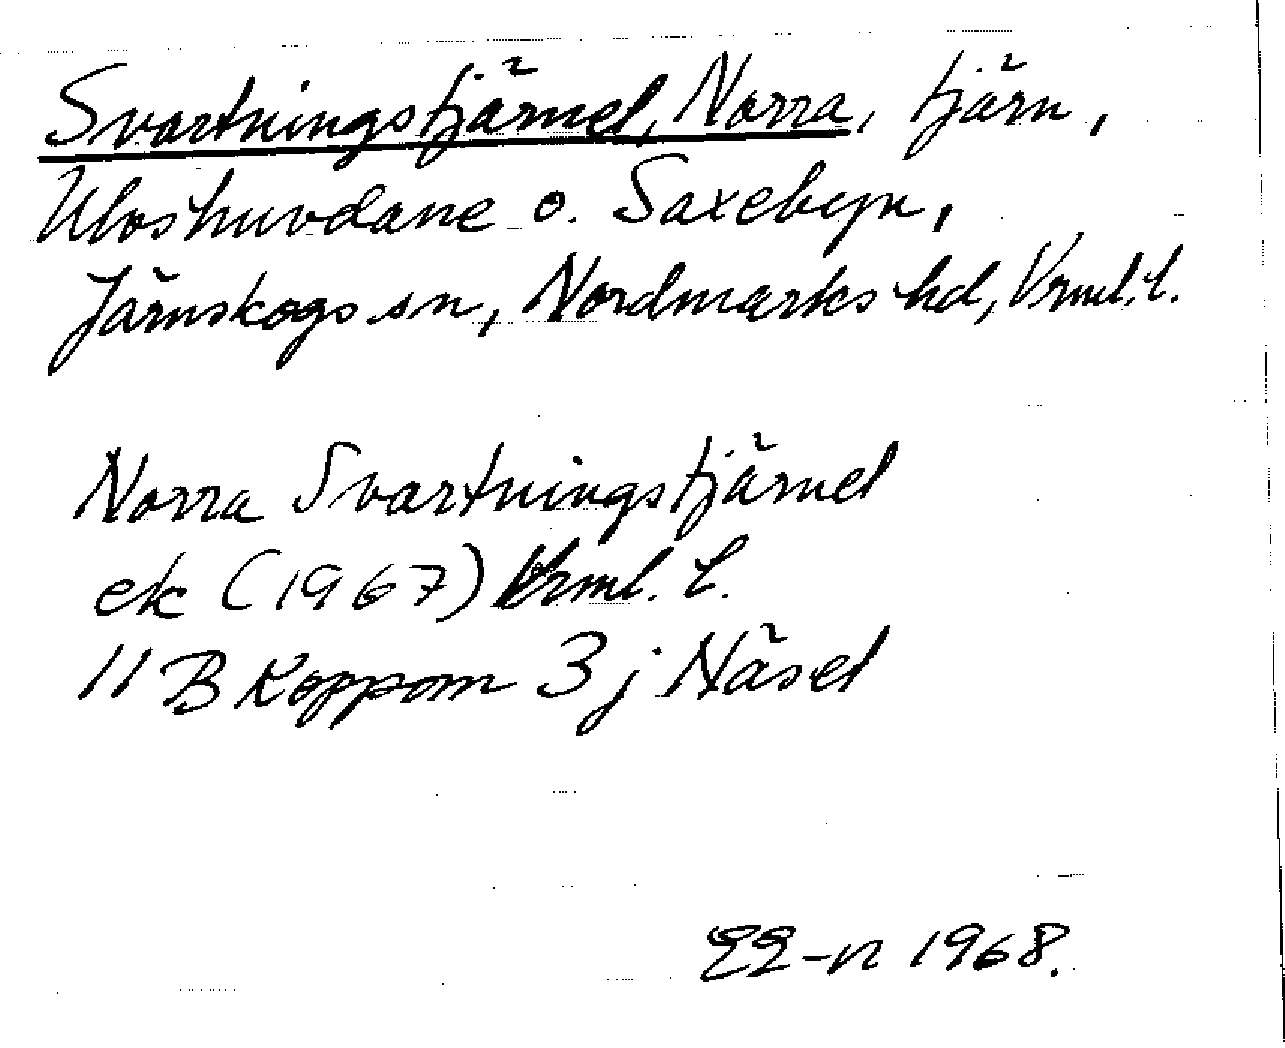 Svartningstjärnet, Norra, tjärn,
Ulvshuvdane o. Saxebyn,
Järnskogs sn, Nordmarks hd, Vrml. l.
Norra Svartningstjärnet
ek (1967) Vrml. l.
11 B Koppom 3 j Näset
EE-n 1968.